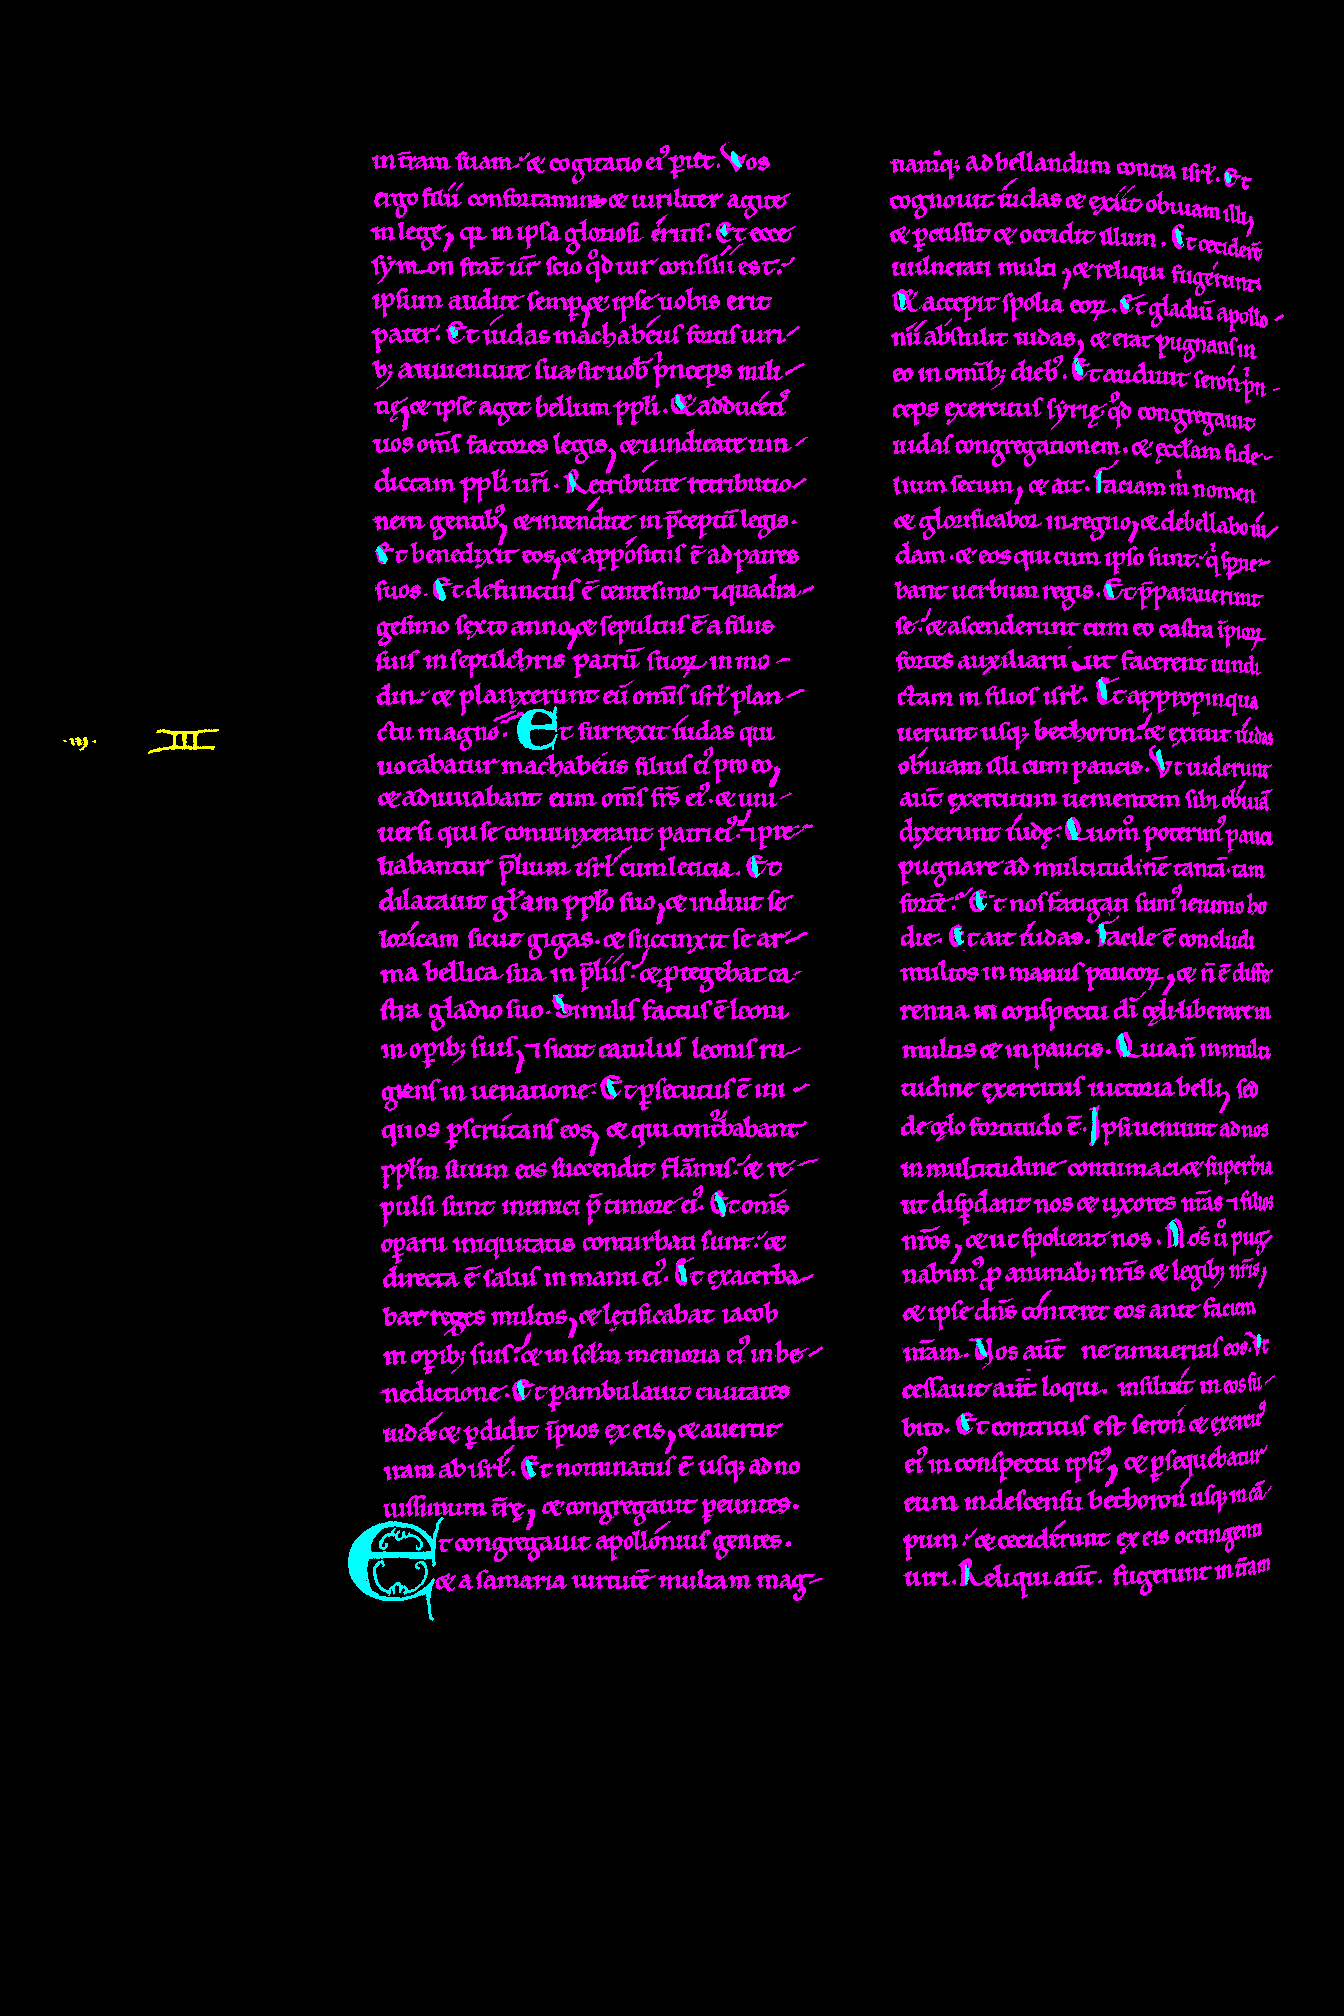 in t̄ram suam. & cogitatio ei᷒ p̱iet. Vos
ergo filii confortamini & uiriliter agite
in lege, q̄ in ipsa gloriosi eritis. Et ecce
symon frat̄ ur̄ scio q̊d uir consilii est.
ipsum audite semp̱, & ipse uobis erit
pater. Et iudas machabeus fortis uiri
b; a iuuentute sua sit uob̄ p'nceps mili
tię, & ipse aget bellum ppl̓i. Et adducet᷒
uos om̄s factores legis, & uindicate uin
dictam ppl̓i ur̄i. Retribuite retributio
nem gentib᷒, & intendite in p̄ceptū legis.
Et benedixit eos, & appositus ē ad patres
suos. Et defunctus ē centesimo ⁊ quadra
gesimo sexto anno, & sepultus ē a filiis
suis in sepulchris patrū suoꝝ in mo
din. & planxerunt eū om̄is isrł plan
ctu magno. Et surrexit iudas qui
uocabatur machabeus filius ei᷒ pro eo,
& adiuuabant eum om̄s fr̄s ei᷒. & uni
uersi qui se coniunxerant patri ei᷒. ⁊ pre
liabantur p̄lium isrł cum leticia. Et
dilatauit głam ppło suo, & induit se
loricam sicut gigas. & succinxit se ar
ma bellica sua in p̄liis. & ꝓtegebat ca
stra gladio suo. Similis factus ē leoni
in op̱ib; suis, ⁊ sicut catulus leonis ru
giens in uenatione. Et p̱secutus ē ini
quos p̱scrutans eos, & qui conturbabant
ppłm suum eos succendit flāmis. & re
pulsi sunt inimici p̄ timore ei᷒. Et om̄s
op̱arii iniquitatis conturbati sunt. &
directa ē salus in manu ei᷒. Et exacerba
bat reges multos, & lętificabat iacob
in op̱ib; suis. & in scłm memoria ei᷒ in be
nedictione. Et p̱ambulauit ciuitates
iuda & p̱didit īpios ex eis, & auertit
iram ab isrł. Et nominatus ē usq; ad no
uissimum t̄rę, & congregauit pereuntes.
Et congregauit apollonius gentes.
& a samaria uirtutē multam mag
·iii·
III
nāq; ad bellandum contra isrł. Et
cognouit iudas & exiit obuiam illi,
& p̱cussit & occidit illum. Et ceciderr̄
uulnerati multi, & reliqui fugerunt.
Et accepit spolia eoꝝ. Et gladiū apollo
nii abstulit iudas, & erat pugnans in
eo in omīb; dieb᷒. Et audiuit seron p'n
ceps exercitus syrię. q̊d congregauit
iudas congregationem. & ęccłam fide
lium secum, & ait. Faciam m' nomen
& glorificabor in regno, & debellabo iu
dam. & eos qui cum ipso sunt. q' sp̱ne
bant uerbum regis. Et p̄parauerunt
se. & ascenderunt cum eo castra īpioꝝ
fortes auxiliarii ut facerent uindi
ctam in filios isrł. Et appropinqua
uerunt usq; bethoron. & exiuit iudas
obuiam illi cum paucis. Vt uiderunt
aut̄ exercitum uenientem sibi obuiā
dixerunt iudę. Quom̊ poterim᷒ pauci
pugnare ad multitudinē tantā. tam
fortē. Et nos fatigati sum᷒ ieiunio ho
die. Et ait iudas. Facile ē concludi
multos in manus paucoꝝ, & n̄ ē diffe
rentia in conspectu dī cęli liberare in
multis & in paucis. Quian̄ in multi
tudine exercitus uictoria belli, sed
de cęlo fortitudo ē. Ipsi ueniunt ad nos
in multitudine contumaci & superbia
ut disp̱dant nos & uxores nr̄as ⁊ filios
nr̄os, & ut spolient nos. Nos ů pug
nabim᷒ ꝓ animab; nr̄is & legib; nr̄is,
& ipse dn̄s conteret eos ante faciem
nr̄am. Vos aut̄ ne timueritis eos. Vt
cessauit aut̄ loqui. insiluit in eos su
bito. Et contritus est seron & exercit᷒
ei᷒ in conspectu ipsi᷒, & p̱sequebatur
eum in descensu bethoron usq; in cā
pum. & ceciderunt ex eis octingenti
uiri. Reliqui aut̄. fugerunt in t̄ram